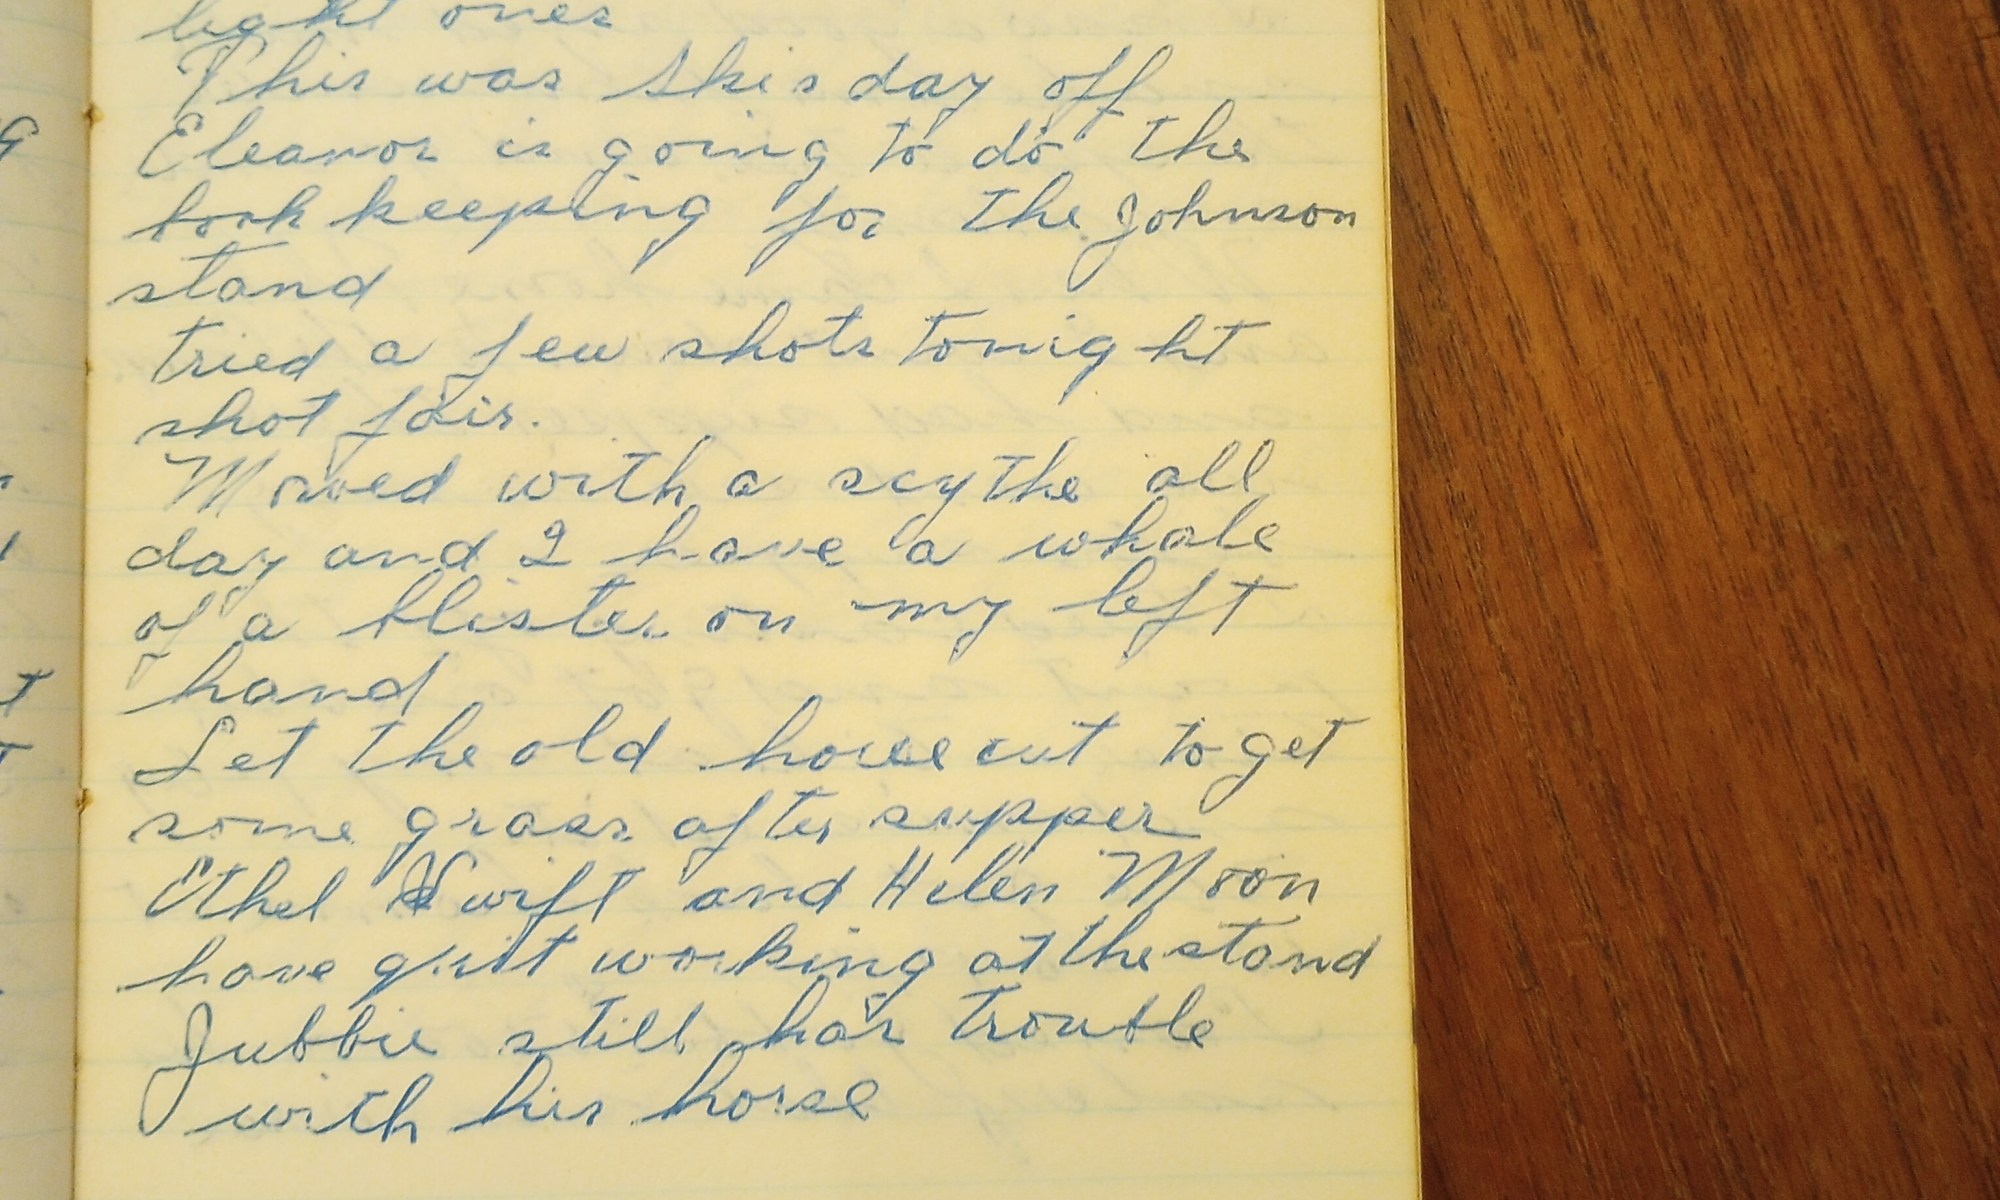 light ones
This was Skis day off
Eleanor is going to do the
book keeping for the Johnson
stand
tried a few shots tonight
shot fair.
Mowed with a scythe all
day and I have a whale
of a blister on my left
hand
Let the old horse out to get
some grass after supper
Ethel Swift and Helen Moon
have quit working at the stand
Jubbie still has trouble
with his horse